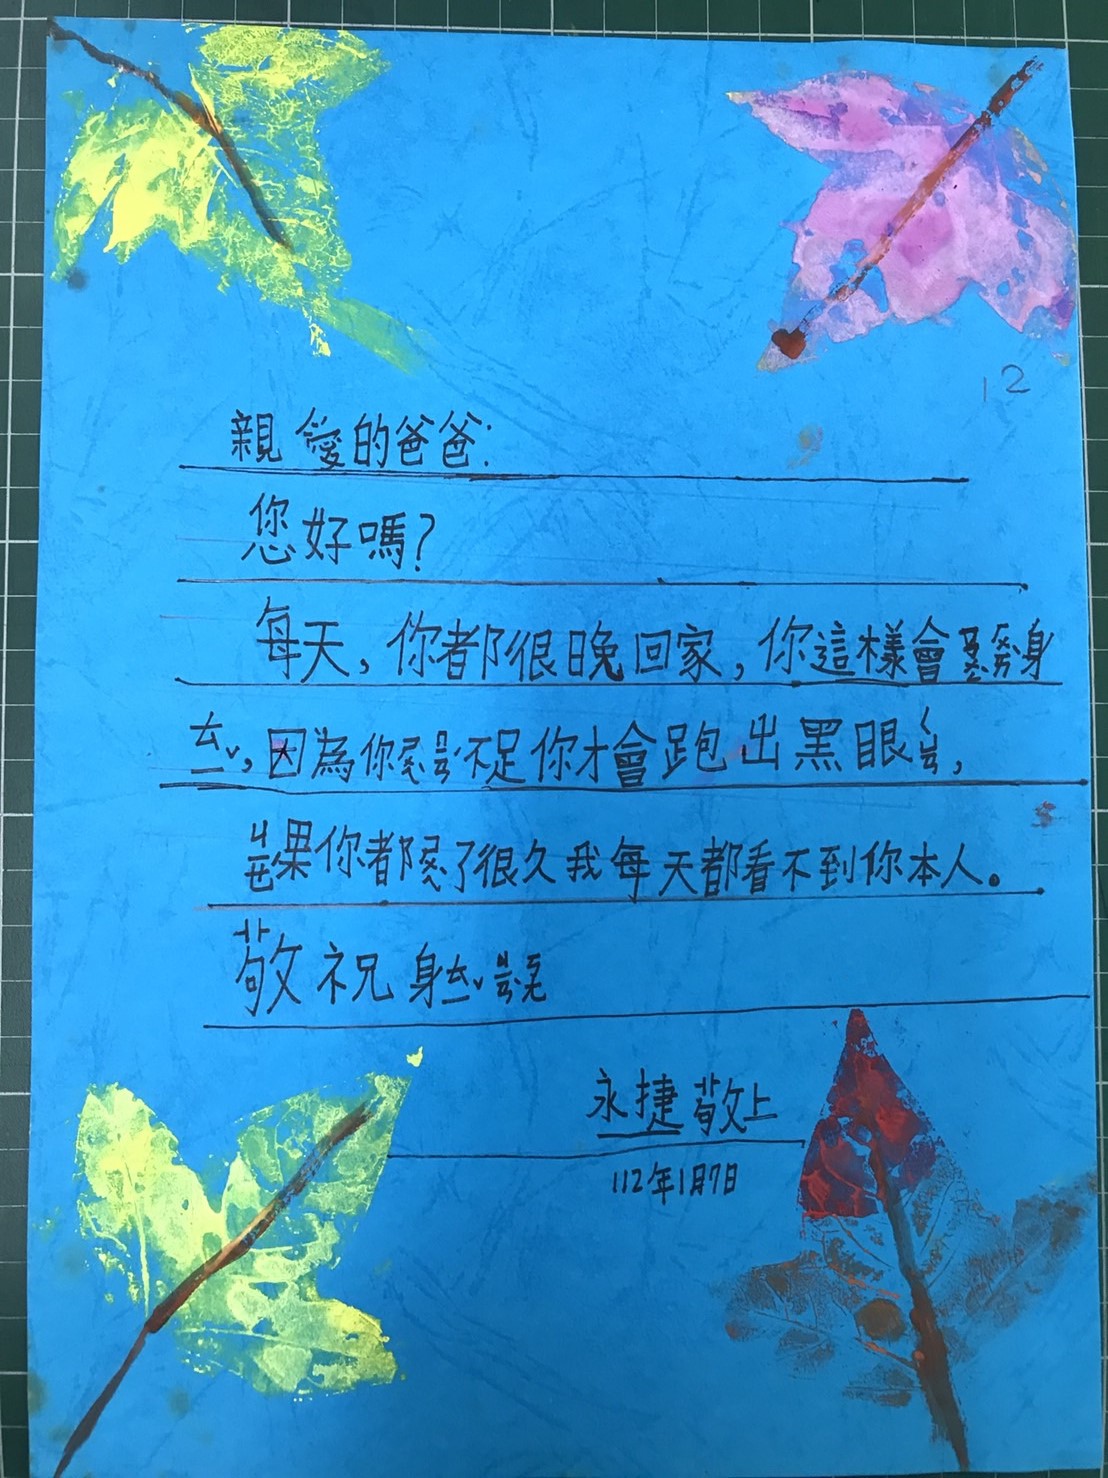 12
親愛的爸爸:
您好嗎?
每天,你都很晚回家,你這樣會身
ㄊㄧˇ,因為你不足你才會跑出黑眼ㄑㄩㄢ,
ㄐㄧㄝ果你都了很久我每天都看不到你本人。
敬祝身ㄊㄧˇ
永捷敬上
112年1月7日